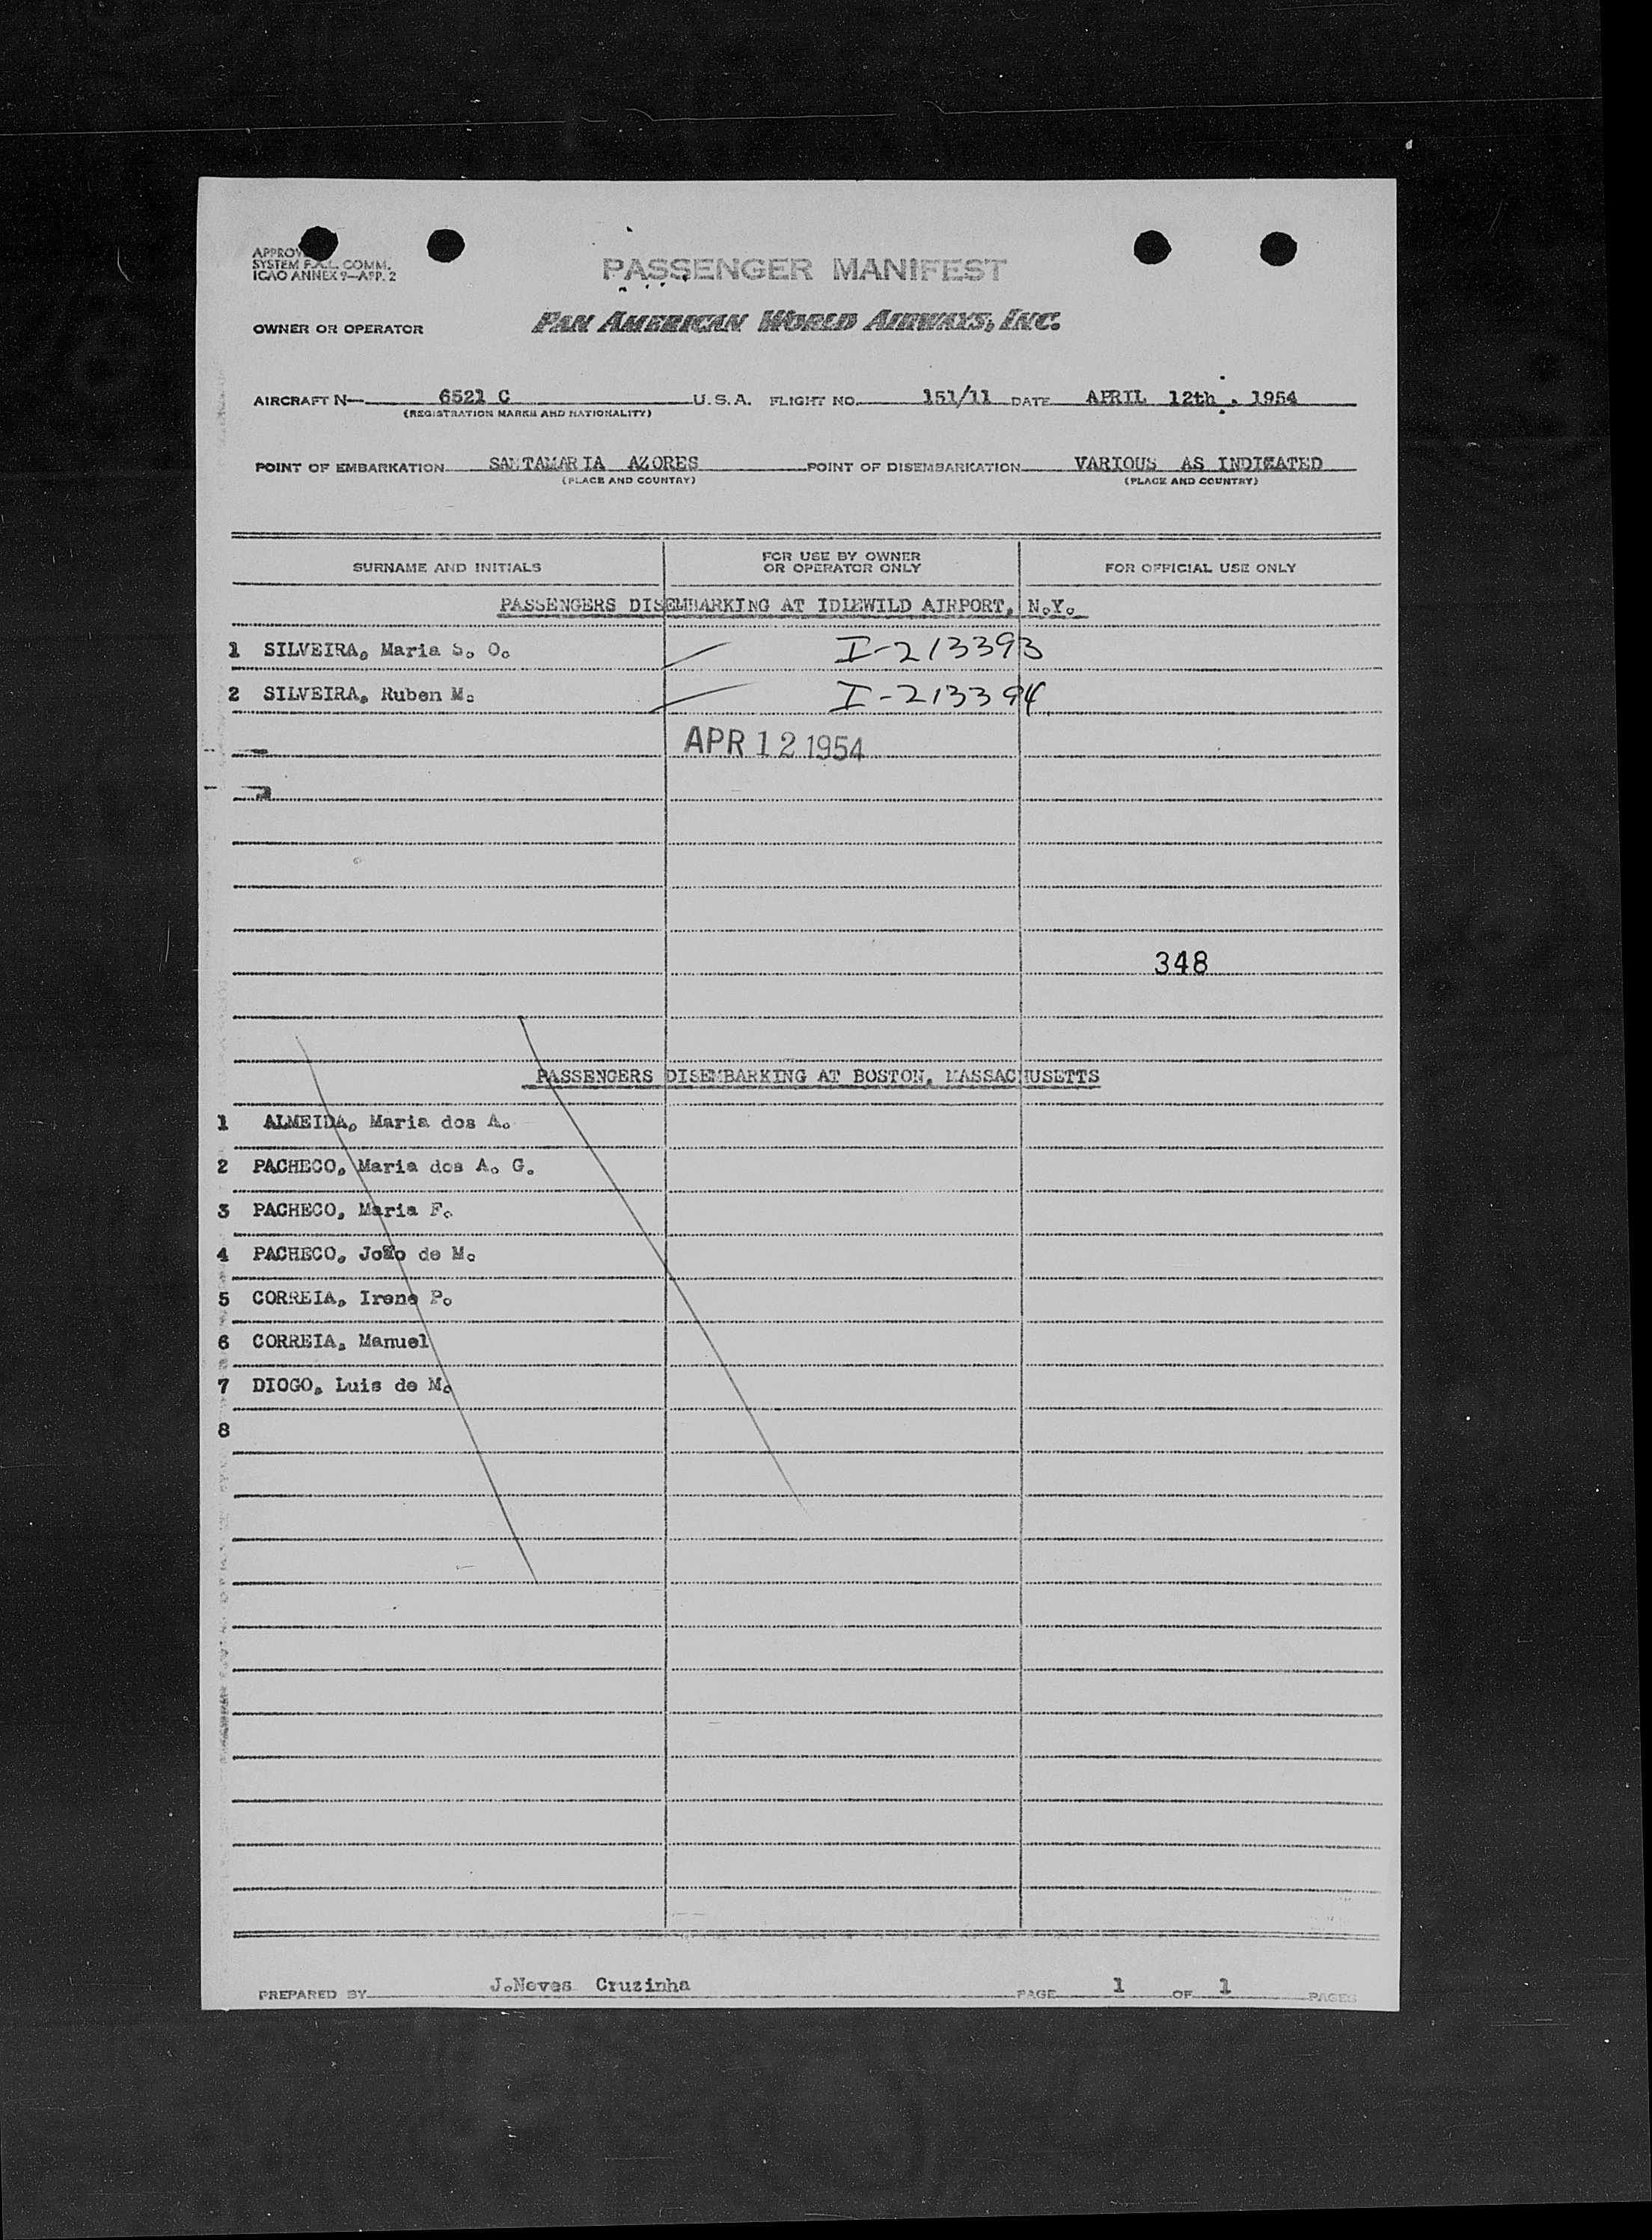 APPROV
SYSTEM F.A.L. COMM.
ICAO ANNEX 9—APP. 2
PASSENGER MANIFEST
OWNER OR OPERATOR PAN AMERICAN WORLD AIRWAYS, INC.
AIRCRAFT N— 6521 C U.S.A. FLIGHT NO. 151/11 DATE APRIL 12th . 1954
(REGISTRATION MARKS AND NATIONALITY)
POINT OF EMBARKATION SANTAMARIA AZORES POINT OF DISEMBARKATION VARIOUS AS INDICATED
(PLACE AND COUNTRY) (PLACE AND COUNTRY)
SURNAME AND INITIALS FOR USE BY OWNER OR OPERATOR ONLY FOR OFFICIAL USE ONLY
PASSENGERS DISEMBARKING AT IDLEWILD AIRPORT, N.Y.
1 SILVEIRA, Maria S. O. I-213393
2 SILVEIRA, Ruben M. I-213394
APR 12 1954
348
PASSENGERS DISEMBARKING AT BOSTON, MASSACHUSETTS
1 ALMEIDA, Maria dos A.
2 PACHECO, Maria dos A. G.
3 PACHECO, Maria F.
4 PACHECO, João de M.
5 CORREIA, Irene P.
6 CORREIA, Manuel
7 DIOGO, Luis de M.
8
PREPARED BY J.Neves Cruzinha PAGE 1 OF 1 PAGES